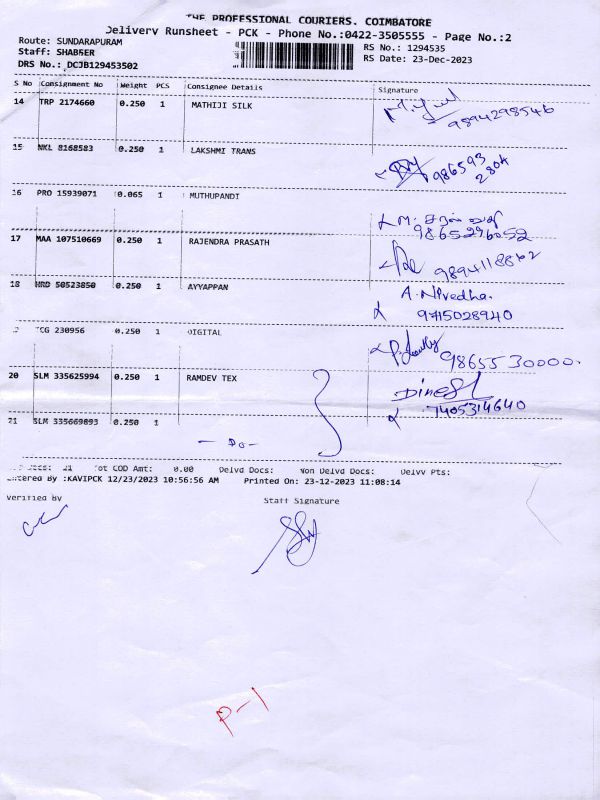 THE PROFESSIONAL COURIERS. COIMBATORE
Delivery Runsheet - PCK - Phone No.:0422-3505555 - Page No.:2
Route: SUNDARAPURAM
RS No.: 1294535
Staff: SHABEER
RS Date: 23-Dec-2023
DRS No.: DCJB129453502
S No Consignment No Weight PCS Consignee Details Signature
14 TRP 2174660 0.250 1 MATHIJI SILK
9894298546
15 NKL 8168583 0.250 1 LAKSHMI TRANS
986593
2804
16 PRO 15939071 0.065 1 MUTHUPANDI
M.
9865296052
17 MAA 107510669 0.250 1 RAJENDRA PRASATH
9894118862
18 HRD 50523850 0.250 1 AYYAPPAN
A. Nivedha.
9715028940
TCG 230956 0.250 1 DIGITAL
9865530000.
20 SLM 335625994 0.250 1 RAMDEV TEX
Dinesh
7405314640
21 SLM 335669893 0.250 1
- Do -
Docs: 21 Tot COD Amt: 0.00 Delvd Docs: Non Delvd Docs: Delvv Pts:
Entered By :KAVIPCK 12/23/2023 10:56:56 AM Printed On: 23-12-2023 11:08:14
Verified By
Staff Signature
P-1